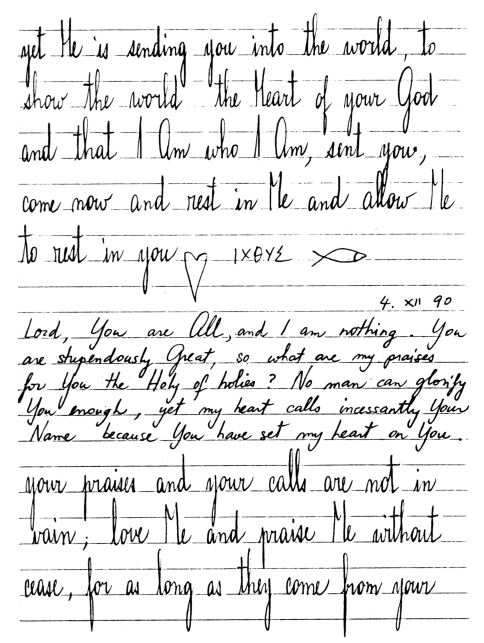 yet He is sending you into the world, to
show the world the Heart of your God
and that I Am who I Am, sent you,
come now and rest in Me and allow Me
to rest in you ΙΧΘΥΣ
4. XII 90
Lord, You are All, and I am nothing. You
are stupendously Great, so what are my praises
for You the Holy of holies? No man can glorify
You enough, yet my heart calls incessantly Your
Name because You have set my heart on You.
your praises and your calls are not in
vain; love Me and praise Me without
cease, for as long as they come from your